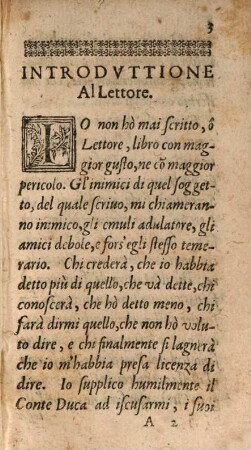 3
INTRODVTTIONE
Al Lettore.
IO non hò mai scritto, ô
Lettore, libro con mag-
gior gusto, ne cõ maggior
pericolo. Gl'inimici di quel sogget-
to, del quale scriuo, mi chiameran-
no inimico, gli emuli adulatore, gli
amici debole, e fors'egli stesso teme-
rario. Chi crederà, che io habbia
detto più di quello, che và dette, chi
conoscerà, che hò detto meno, chi
farà dirmi quello, che non hò volu-
to dire, e chi finalmente si lagnerà
che io m'habbia presa licenza di
dire. Io supplico humilmente il
Conte Duca ad iscusarmi, i suoi
A 2